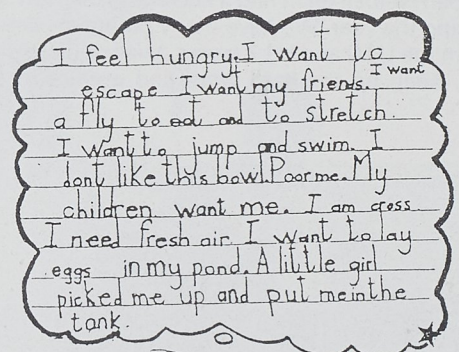 I feel hungry. I want to
escape I want my friends. I want
a fly to eat and to stretch.
I want to jump and swim. I
dont like this bowl. Poor me. My
children want me. I am cross
I need fresh air. I want to lay
eggs in my pond. A little girl
picked me up and put me in the
tank.